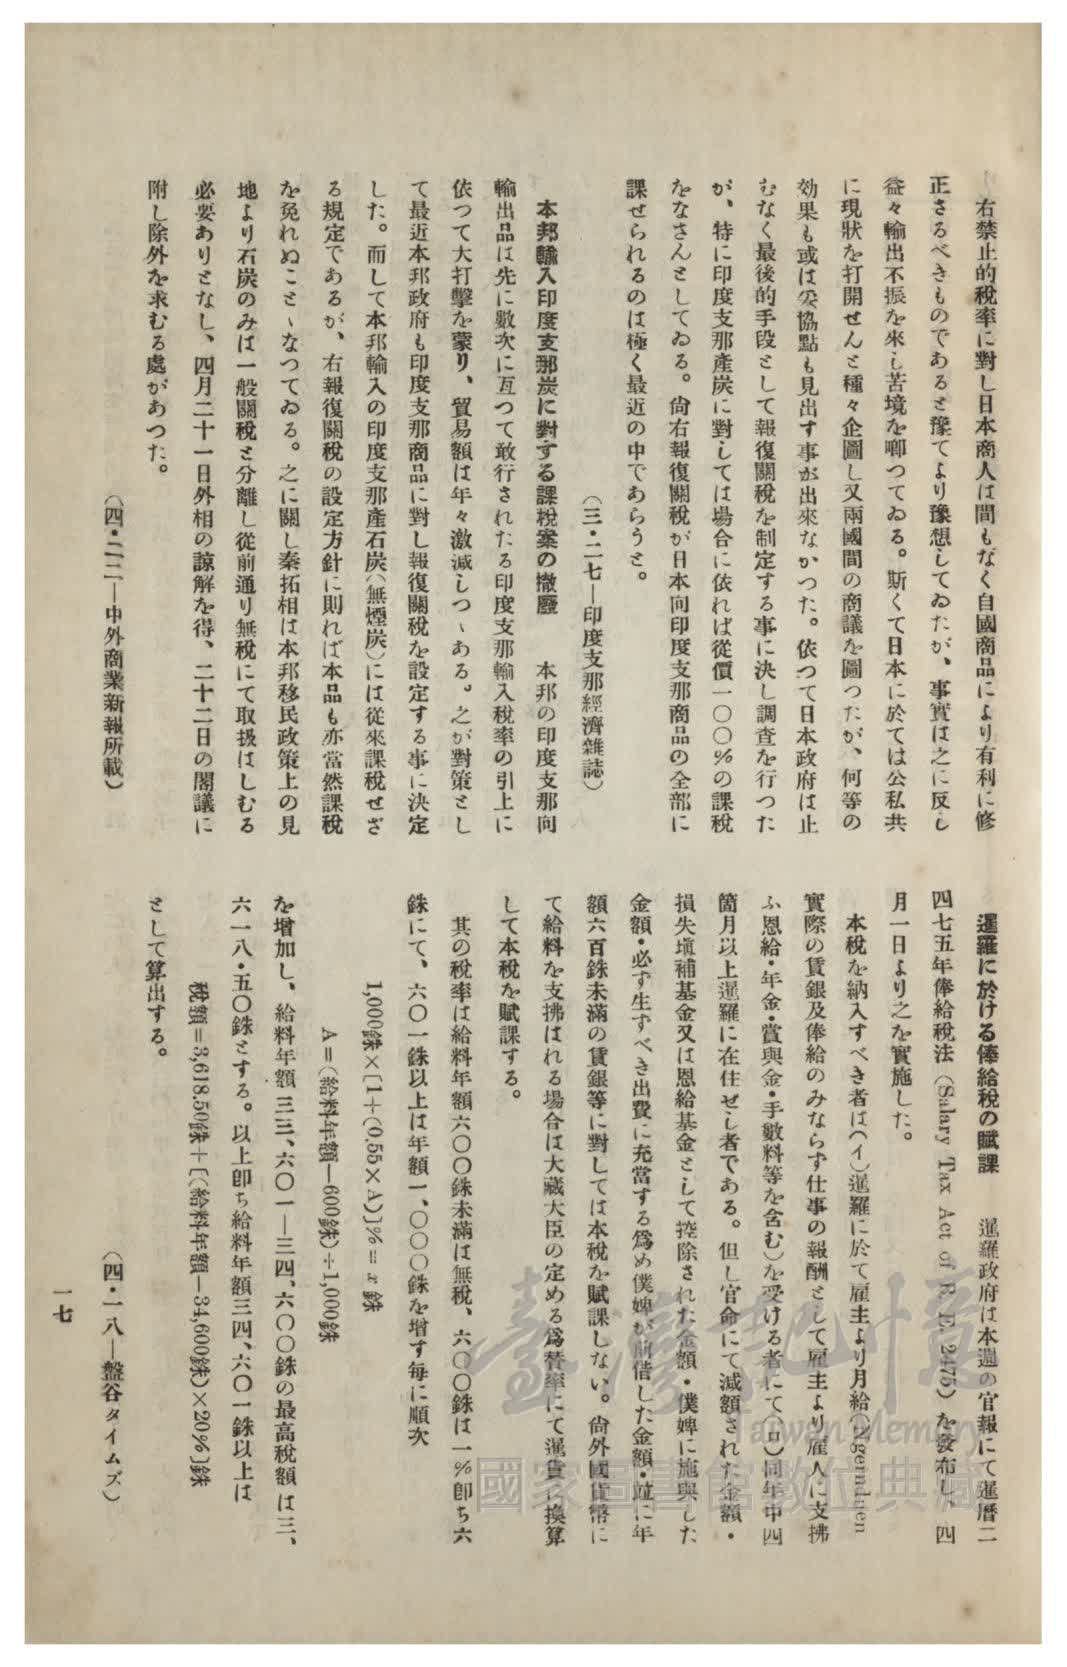 右禁止的稅率に對し日本商人は間もなく自國商品により有利に修
正さるべきものであると豫てより豫想してゐたが、事實は之に反し
益々輸出不振を來し苦境を喞つてゐる。斯くて日本に於ては公私共
に現狀を打開せんと種々企圖し又兩國間の商議を圖つたが、何等の
効果も或は妥協點も見出す事が出來なかつた。依つて日本政府は止
むなく最後的手段として報復關稅を制定する事に決し調査を行つた
が、特に印度支那產炭に對しては場合に依れば從價一〇〇％の課稅
をなさんとしてゐる。尙右報復關稅が日本向印度支那商品の全部に
課せられるのは極く最近の中であらうと。
（三・二七―印度支那經濟雜誌）
本邦輸入印度支那炭に對する課稅案の撤廢　本邦の印度支那向
輸出品は先に數次に亙つて敢行されたる印度支那輸入稅率の引上に
依つて大打擊を蒙り、貿易額は年々激減しつゝある。之が對策とし
て最近本邦政府も印度支那商品に對し報復關稅を設定する事に決定
した。而して本邦輸入の印度支那產石炭（無煙炭）には從來課稅せざ
る規定であるが、右報復關稅の設定方針に則れば本品も亦當然課稅
を免れぬことゝなつてゐる。之に關し秦拓相は本邦移民政策上の見
地より石炭のみは一般關稅と分離し從前通り無稅にて取扱はしむる
必要ありとなし、四月二十一日外相の諒解を得、二十二日の閣議に
附し除外を求むる處があつた。
（四・二二―中外商業新報所載）
暹羅に於ける俸給稅の賦課　暹羅政府は本週の官報にて暹曆二
四七五年俸給稅法（Salary Tax Act of B. E. 2475）を發布し、四
月一日より之を實施した。
本稅を納入すべき者は（イ）暹羅に於て雇主より月給（Ngernduen
實際の賃銀及俸給のみならず仕事の報酬として雇主より雇人に支拂
ふ恩給・年金・賞與金・手數料等を含む）を受ける者にて（ロ）同年中四
箇月以上暹羅に在住せし者である。但し官命にて減額された金額・
損失塡補基金又は恩給基金として控除された金額・僕婢に施與した
金額・必ず生ずべき出費に充當する爲め僕婢が前借した金額・竝に年
額六百銖未滿の賃銀等に對しては本稅を賦課しない。尙外國貨幣に
て給料を支拂はれる場合は大藏大臣の定める爲替率にて暹貨に換算
して本稅を賦課する。
其の稅率は給料年額六〇〇銖未滿は無稅、六〇〇銖は一％卽ち六
銖にて、六〇一銖以上は年額一、〇〇〇銖を增す每に順次
1,000銖×[1+(0.55×A)]%=x銖
A=(給料年額－600銖)÷1,000銖
を增加し、給料年額三三、六〇一―三四、六〇〇銖の最高稅額は三、
六一八・五〇銖とする。以上卽ち給料年額三四、六〇一銖以上は
稅額=3,618.50銖+[(給料年額－34,600銖)×20%]銖
として算出する。
（四・一八―盤谷タイムズ）
一七
臺灣記憶
Taiwan Memory
國家圖書館數位典藏